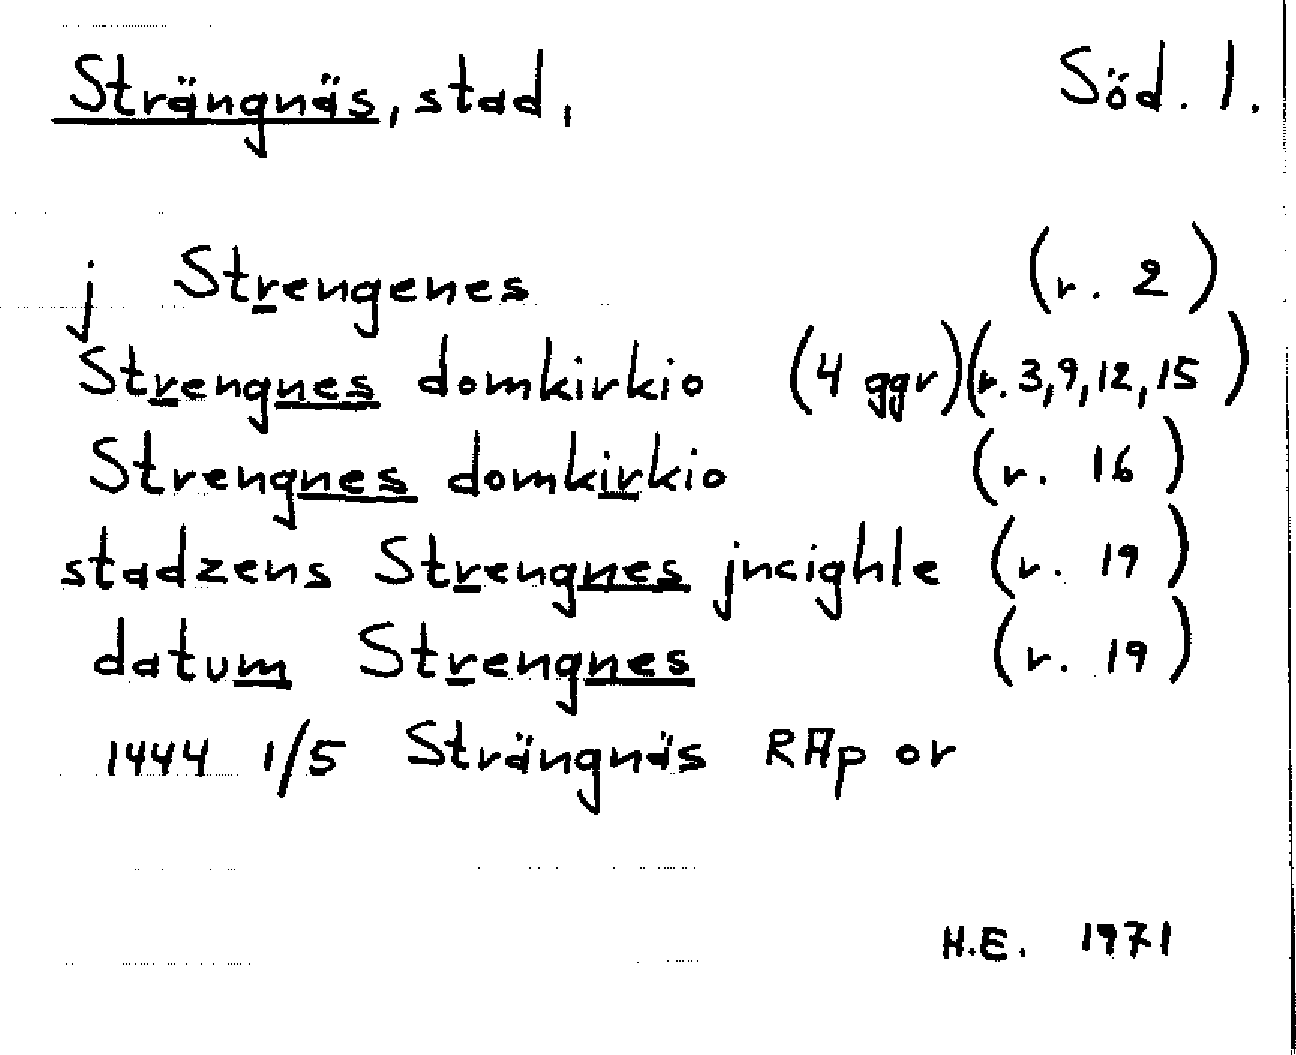 Strängnäs, stad, Söd. l.
j Strengenes (r. 2)
Strengnes domkirkio (4 ggr)(r. 3,9,12,15)
Strengnes domkirkio (r. 16)
stadzens Strengnes jncighle (r. 19)
datum Strengnes (r. 19)
1444 1/5 Strängnäs RAp or
H.E. 1971